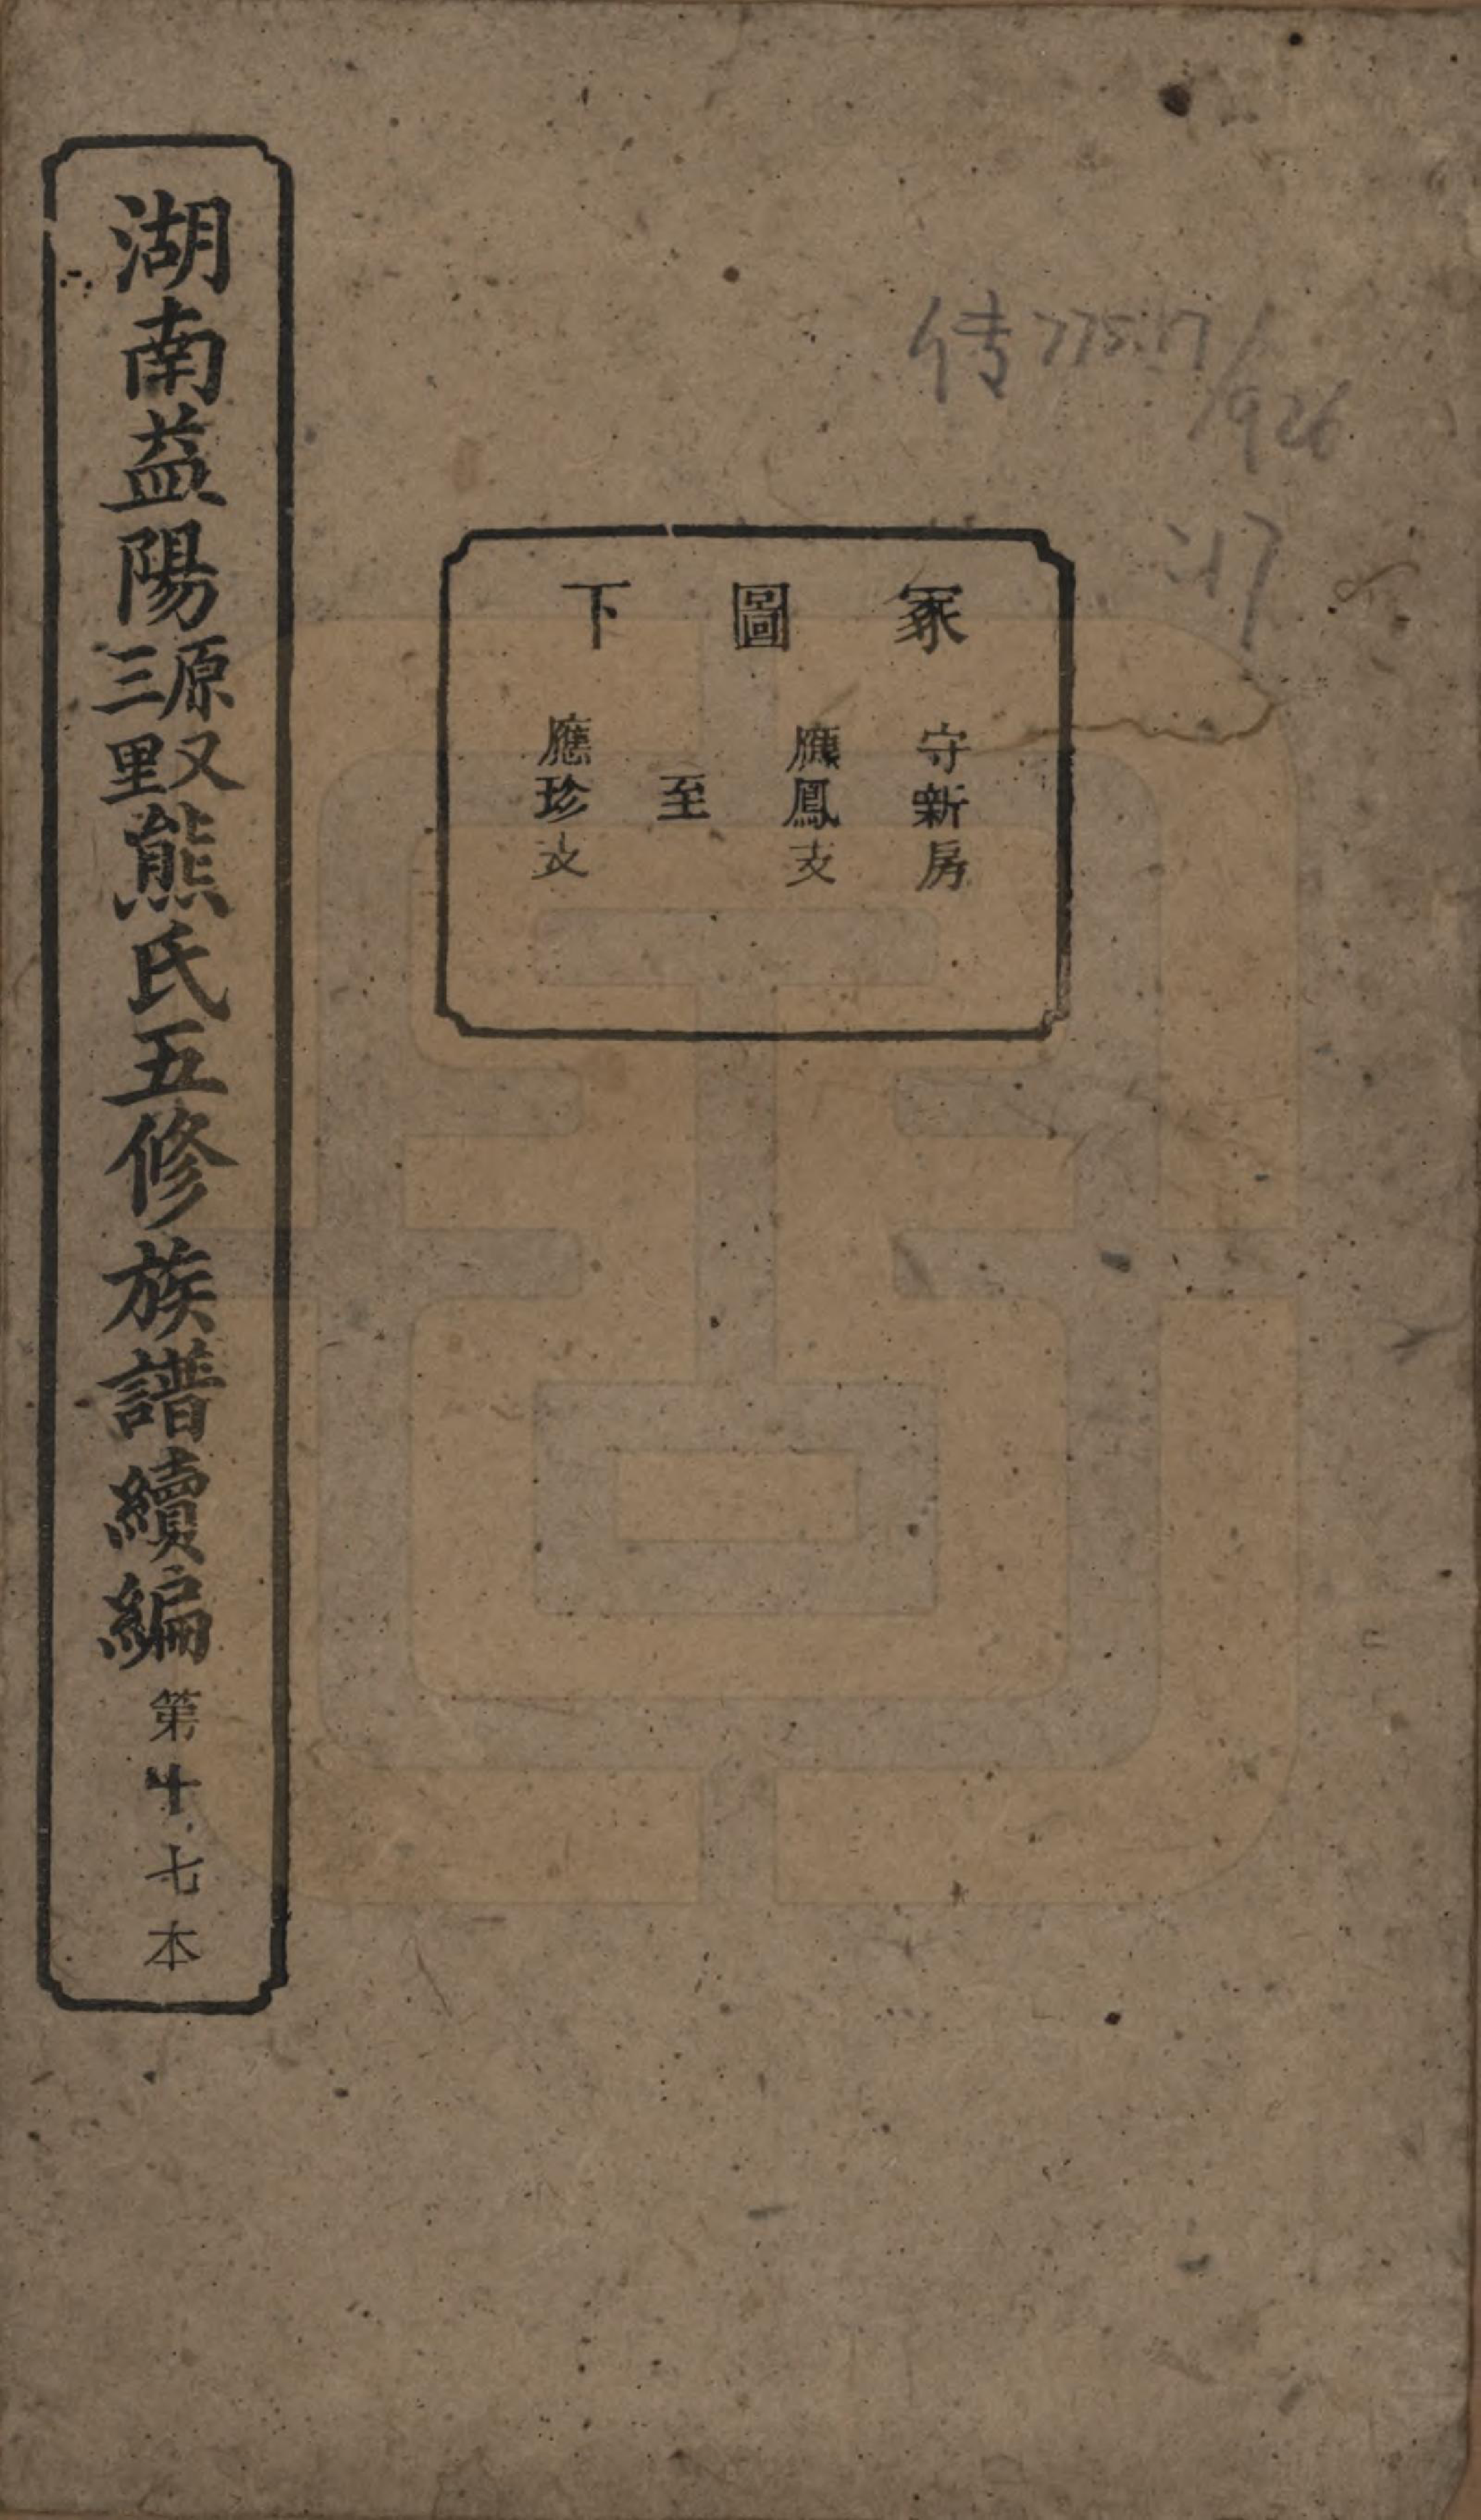 湖南益陽原又三里熊氏五修族譜續編第十七本
冢圖下
守新房
應鳳支
至
應珍支
传775.17/
1926
:17